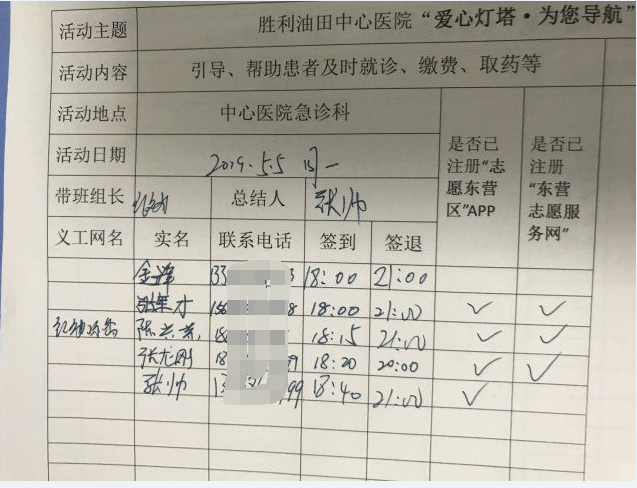 活动主题 胜利油田中心医院“爱心灯塔·为您导航”
活动内容 引导、帮助患者及时就诊、缴费、取药等
活动地点 中心医院急诊科
活动日期 2019.5.5 周一
带班组长 总结人 张帅
是否已注册“志愿东营区”APP
是否已注册“东营志愿服务网”
义工网名 实名 联系电话 签到 签退
133 3 18:00 21:00
8 18:00 21:00 ✓ ✓
18:15 21:00 ✓ ✓
张龙刚 18 99 18:20 20:00 ✓ ✓
张帅 1 99 18:40 21:00 ✓